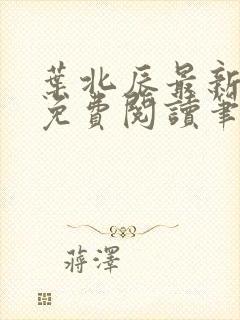 葉北辰最新
免費閱讀筆
蔣澤